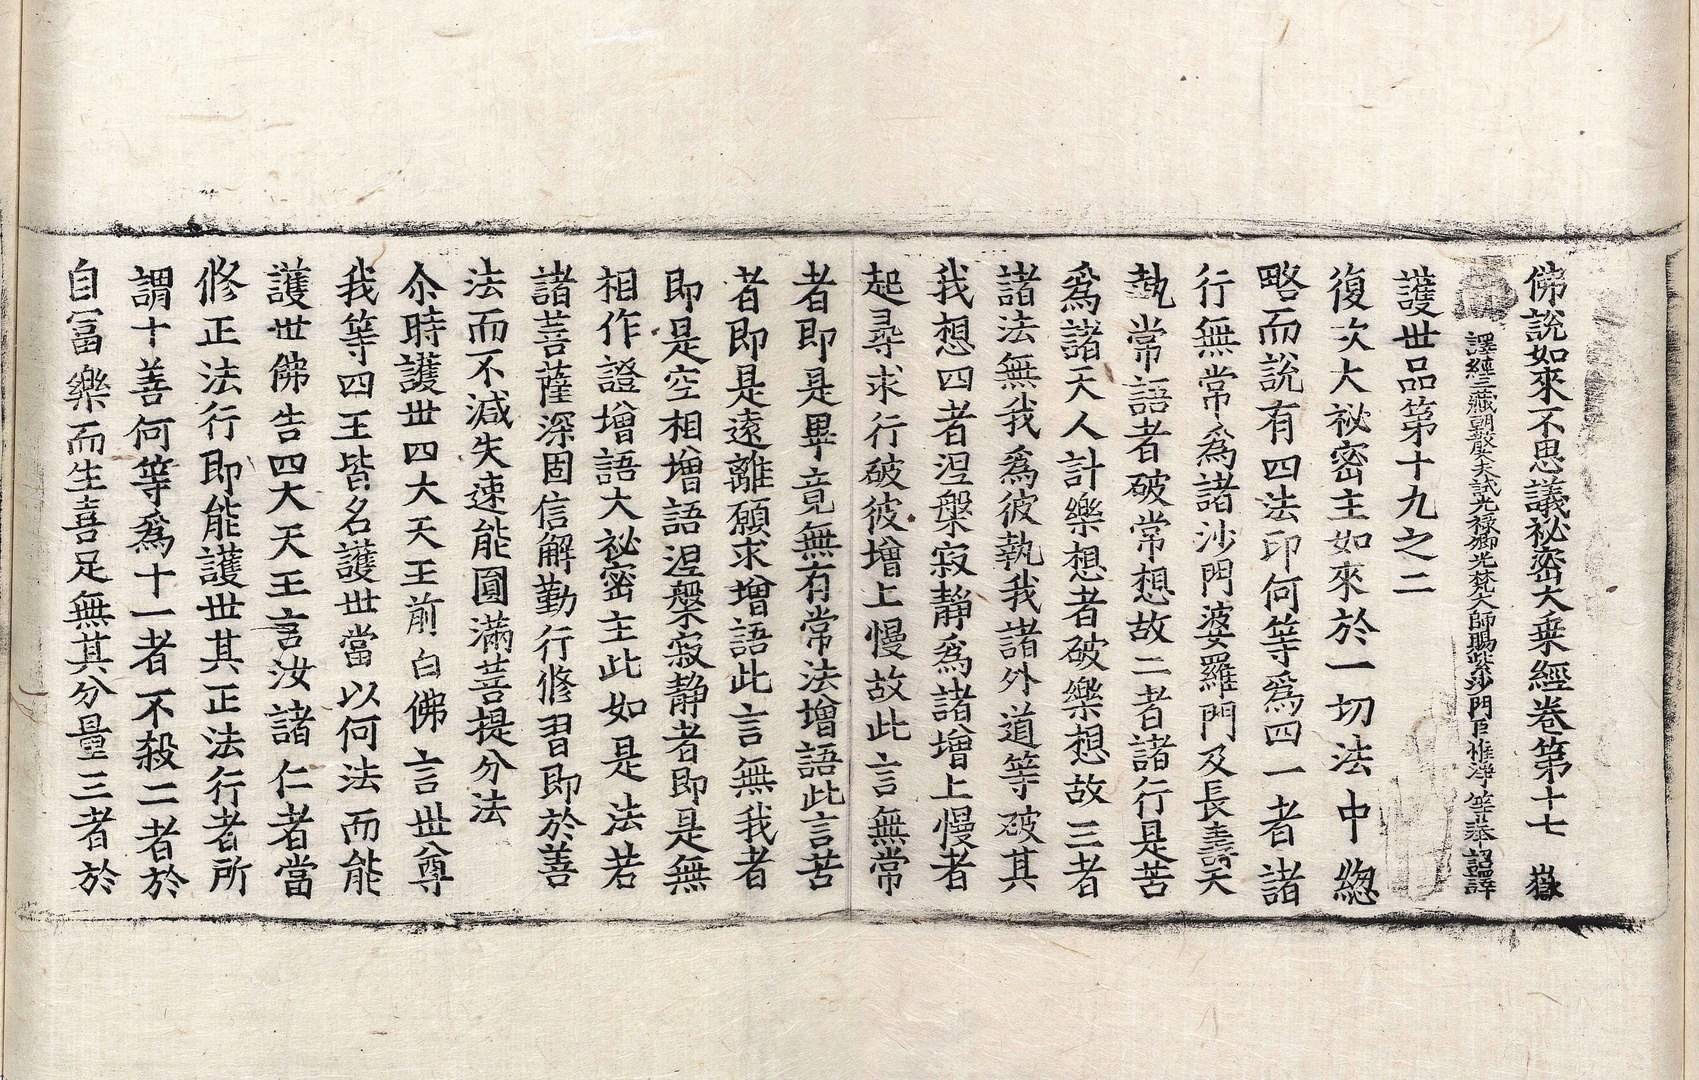 佛說如來不思議祕密大乗經卷第十七　嶽
譯經三藏朝散大夫試光禄卿光梵大師賜紫沙門臣惟淨等奉詔譯
護世品第十九之二
復次大祕密主如來於一切法中緫
略而說有四法印何等爲四一者諸
行無常爲諸沙門婆羅門及長壽天
執常語者破常想故二者諸行是苦
爲諸天人計樂想者破樂想故三者
諸法無我爲彼執我諸外道等破其
我想四者涅槃寂靜爲諸增上慢者
起尋求行破彼增上慢故此言無常
者即是畢竟無有常法增語此言苦
者即是遠離願求增語此言無我者
即是空相增語涅槃寂静者即是無
相作證增語大祕密主此如是法若
諸菩薩深固信解勤行修習即於善
法而不減失速能圓滿菩提分法
尒時護世四大天王前白佛言世尊
我等四王皆名護世當以何法而能
護世佛告四大天王言汝諸仁者當
修正法行即能護世其正法行者所
謂十善何等爲十一者不殺二者於
自富樂而生喜足無其分量三者於